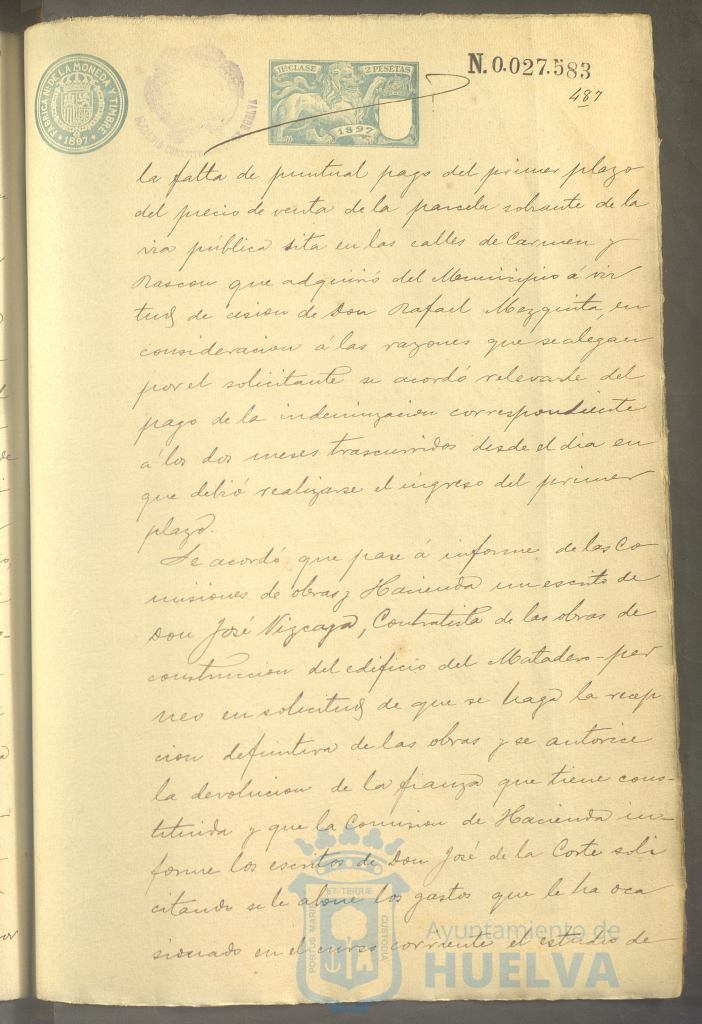 FÁBRICA NL. DE LA MONEDA Y TIMBRE
* 1897 *
11ª CLASE 2 PESETAS
1897
N. 0.027.583
487
la falta de puntual pago del primer plazo
del precio de venta de la parcela sobrante de la
via pública sita en las calles de Carmen y
Rascon que adquirió del Municipio á vir
tud de cesion de Don Rafael Mezquita, en
consideracion á las razones que se alegan
por el solicitante se acordó relevarle del
pago de la indemnizacion correspondiente
á los dos meses trascurridos desde el dia en
que debió realizarse el ingreso del primer
plazo.
Se acordó que pase á informe de las Co
misiones de obras y Hacienda un escrito de
Don José Vizcaya, Contratista de las obras de
construccion del edificio del Matadero-per
neo en solicitud de que se haga la recep
cion definitiva de las obras y se autorice
la devolucion de la fianza que tiene cons-
tituida y que la Comision de Hacienda in-
forme los escritos de Don José de la Corte soli
citando se le abone los gastos que le ha oca
sionado en el curso corriente el estudio de
PORTUS MARIS ET TERRÆ CUSTODIA
Ayuntamiento de
HUELVA